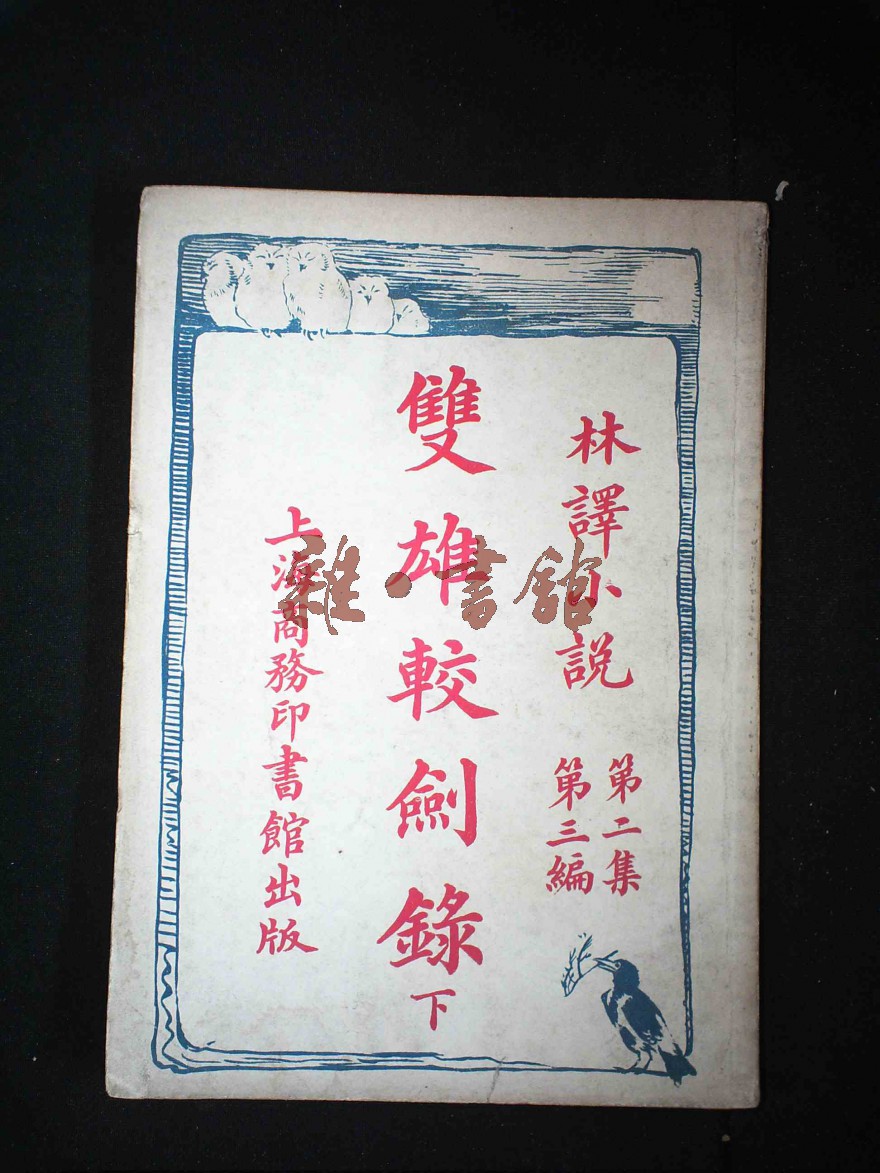 林譯小説
第二集
第三編
雙雄較劍錄下
上海商務印書館出版
雜·書館